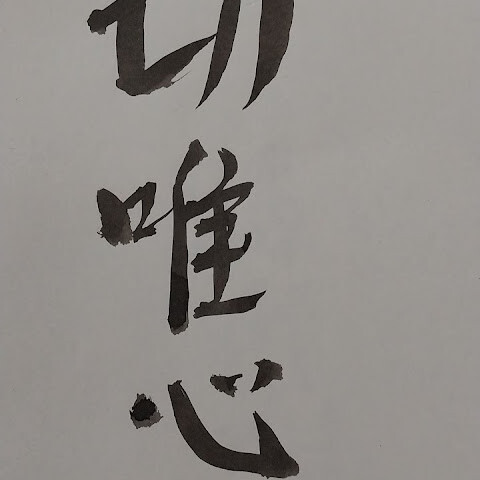 切唯心